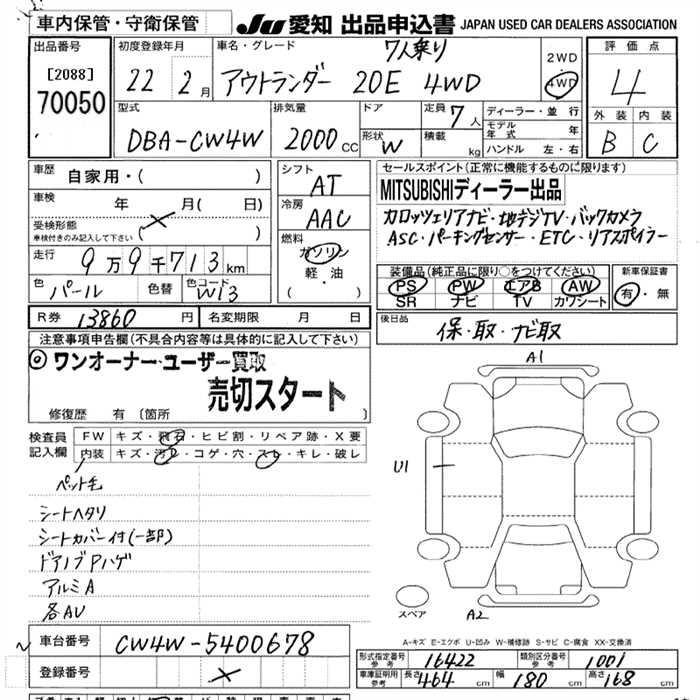 車内保管・守衛保管
JU 愛知 出品申込書 JAPAN USED CAR DEALERS ASSOCIATION
出品番号
[2088]
70050
初度登録年月
22 2月
車名・グレード
7人乗り
アウトランダー 20E 4WD
2WD
4WD
評価点
4
外装 内装
B C
型式
DBA-CW4W
排気量
2000cc
ドア
形状 W
定員 7人
積載 kg
ディーラー・並行
モデル年式 年
ハンドル 左・右
車歴 自家用・( )
車検 年 月( 日)
受検形態
車検付きのみ記入して下さい ( )
走行 9万9千713km
色 パール 色替 色コード W13
シフト
AT
冷房
AAC
燃料
ガソリン
軽・油
( )
セールスポイント(正常に機能するものに限ります)
MITSUBISHIディーラー出品
カロッツェリアナビ・地デジTV・バックカメラ
ASC・パーキングセンサー・ETC・リアスポイラー
装備品(純正品に限り○をつけてください)
PS PW エアB AW
SR ナビ TV カワシート
新車保証書
有・無
R券 13860円 名変期限 月 日
後日品 保・取・ナビ取
注意事項申告欄(不具合内容等は具体的に記入して下さい)
◎ワンオーナー・ユーザー買取
売切スタート
修復歴 有〔箇所 〕
検査員記入欄
FW キズ・飛石・ヒビ割・リペア跡・X要
内装 キズ・汚れ・コゲ・穴・スレ・キレ・破レ
ペット毛
シートヘタリ
シートカバー付(一部)
ドアノブPハゲ
アルミA
各AU
A1
U1
スペア
A2
A-キズ E-エクボ U-凹み W-補修跡 S-サビ C-腐食 XX-交換済
車台番号 CW4W-5400678
登録番号
形式指定番号 参考 16422 類別区分番号 参考 1001
車庫証明用 参考 長さ 464cm 幅 180cm 高さ 168cm